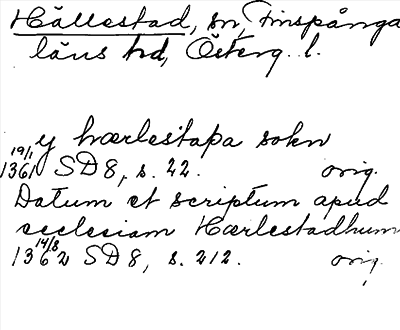 Hällestad, sn, Finspånga
läns hd, Österg. l.
y hærlestaþa sokn
19/1 1361 SD 8, s. 22. orig.
Datum et scriptum apud
ecclesiam Hærlestadhum
14/8 1362 SD 8, s. 212. orig.